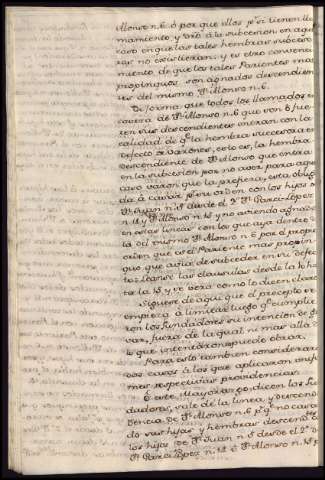 Alonso n. 6. ó por que ellos pr. si tienen lla
mamiento, y dró á la subcesion en aquel
caso en que las tales hembras subcesó
ras no existieran: y es otro convenci
miento de que los tales Parientes mas
propinquos son agnados descendien
tes del mismo Dn. Alonso n. 6.
De forma que todos los llamados en
cavera de Dn. Alonso n. 6 que von ó fue
ren sus descendientes entran con la
calidad de qe. la hembra succesora en
defecto de varones, esto es, la hembra
descendiente de Dn. Alonso que entra
en la subcesion por no aver para aquel
caso varon que la prefiera, está obliga
da á casar pr. su orden con los hijos de
Dn. Juan n. 5 desde el 2º Dn. Garci-Lopez
n. 11 y Dn. Alonso n. 15 y no aviendo agnados
en estas lineas con los que aya desde
la del mismo Dn. Alonso n. 6 por el propio
orden que es el Pariente mas propin
quo que avia de subceder en su defec
to: Leanse las clausulas desde la
ta la 13, y se verá como lo dicen claro
Siguese de aqui que el precepto
empieza á limitar luego qe. cumplie
ron los fundadores su intencion de
var, fuera de la qual ni mas allá
lo que intentaron puede obrar.
Para esto tambien consideraron
dos casos á los que aplicaron unifor
mes respectivas providencias.
Ó este Mayorazgo dicen los fun
dadores, sale de la linea y descen
dencia de Dn. Alonso n. 6 pr. qe. no
do sus hijas y hembras descendtes.
los hijos de Dn. Juan n. 5 desde el 2º
Dn. Garci Lopez n. 12 ó Dn. Alonso n. 15